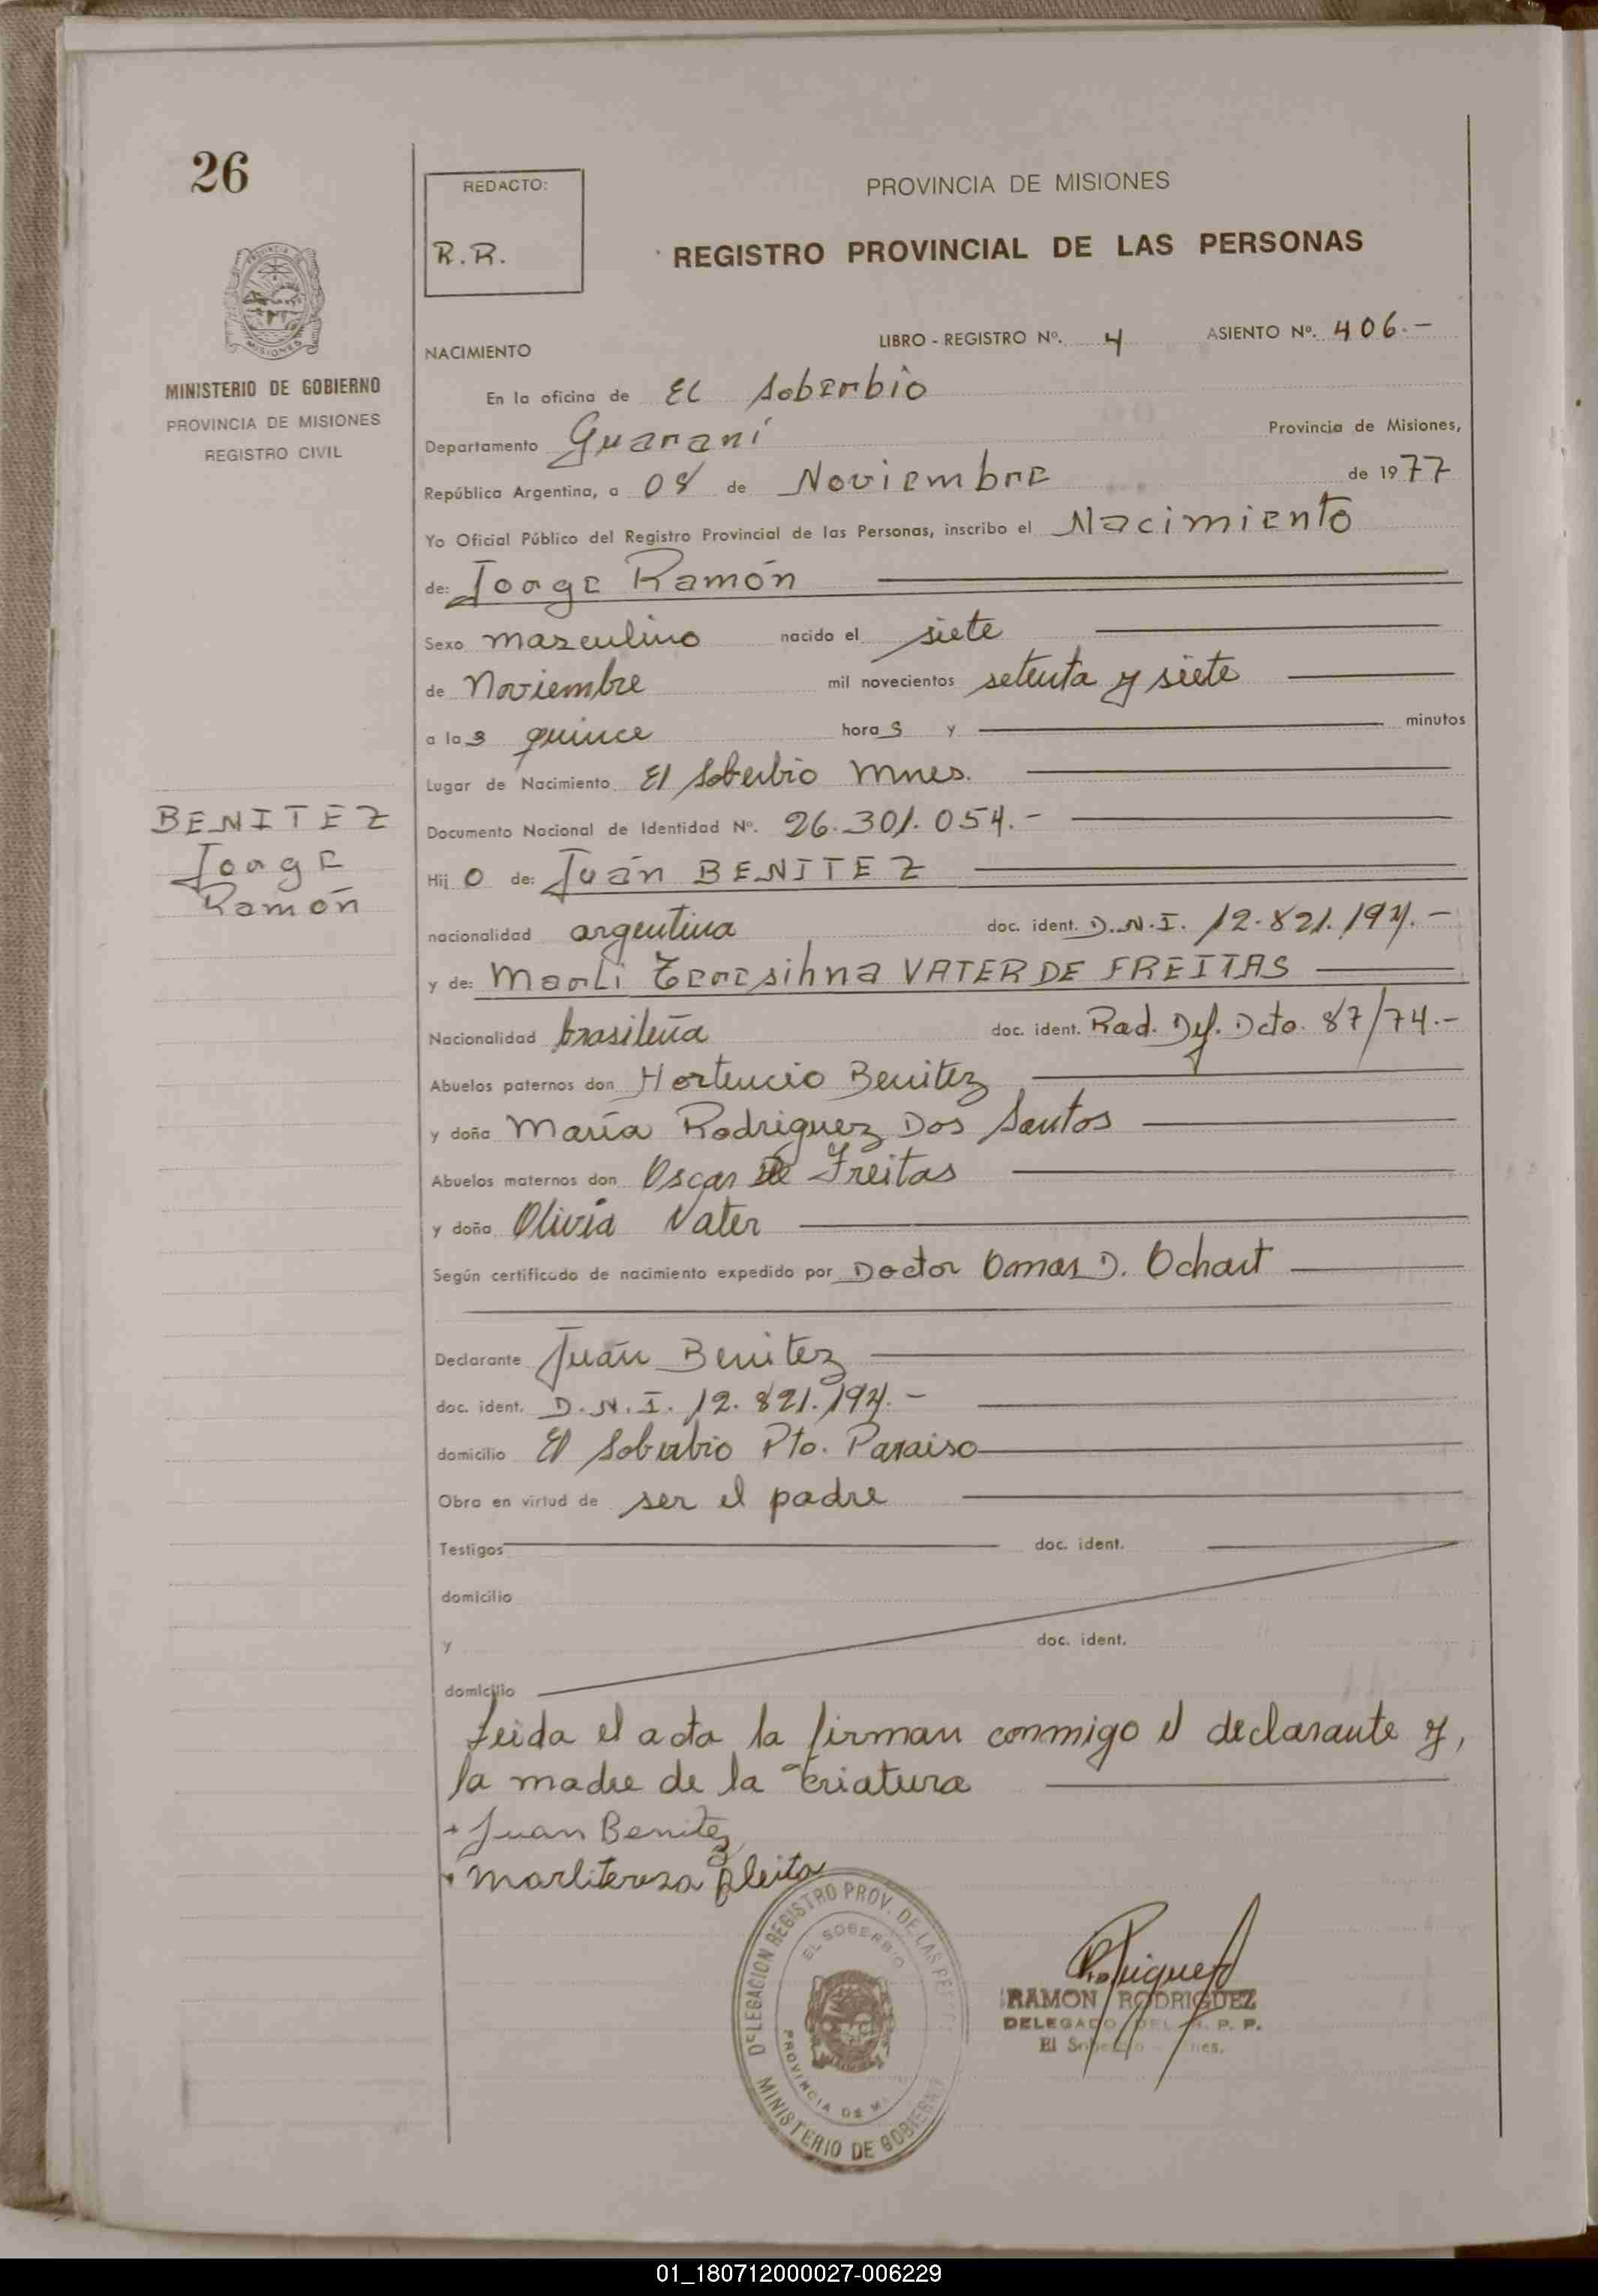 26
REDACTO:
R.R.
PROVINCIA DE MISIONES
REGISTRO PROVINCIAL DE LAS PERSONAS
MINISTERIO DE GOBIERNO
PROVINCIA DE MISIONES
REGISTRO CIVIL
NACIMIENTO
LIBRO - REGISTRO Nº. 4 ASIENTO Nº. 406.-
En la oficina de El Soberbio
Departamento Guaraní Provincia de Misiones,
República Argentina, a 08 de Noviembre de 1977
Yo Oficial Público del Registro Provincial de las Personas, inscribo el Nacimiento
de: Jorge Ramón
Sexo masculino nacido el siete
de Noviembre mil novecientos setenta y siete
a las quince horas y minutos
Lugar de Nacimiento El Soberbio Mnes.
BENITEZ
Jorge
Ramón
Documento Nacional de Identidad Nº. 26.301.054.-
Hijo de: Juán BENITEZ
nacionalidad argentina doc. ident. D.N.I. 12.821.194.-
y de: Marli Teresihna VATER DE FREITAS
Nacionalidad brasileña doc. ident. Rad. Def. Dcto. 87/74.-
Abuelos paternos don Hortencio Benitez
y doña María Rodriguez Dos Santos
Abuelos maternos don Oscar De Freitas
y doña Olivia Vater
Según certificado de nacimiento expedido por Doctor Omar D. Ochart
Declarante Juán Benitez
doc. ident. D.N.I. 12.821.194.-
domicilio El Soberbio Pto. Paraiso
Obra en virtud de ser el padre
Testigos doc. ident.
domicilio
y doc. ident.
domicilio
Leida el acta la firman conmigo el declarante y,
la madre de la criatura
Juan Benitez
Marlitereza
DELEGACION REGISTRO PROV. DE LAS
EL SOBERBIO
PROVINCIA DE
MINISTERIO DE GOBIERNO
RAMON RODRIGUEZ
DELEGADO DEL R. P. P.
El
01_180712000027-006229